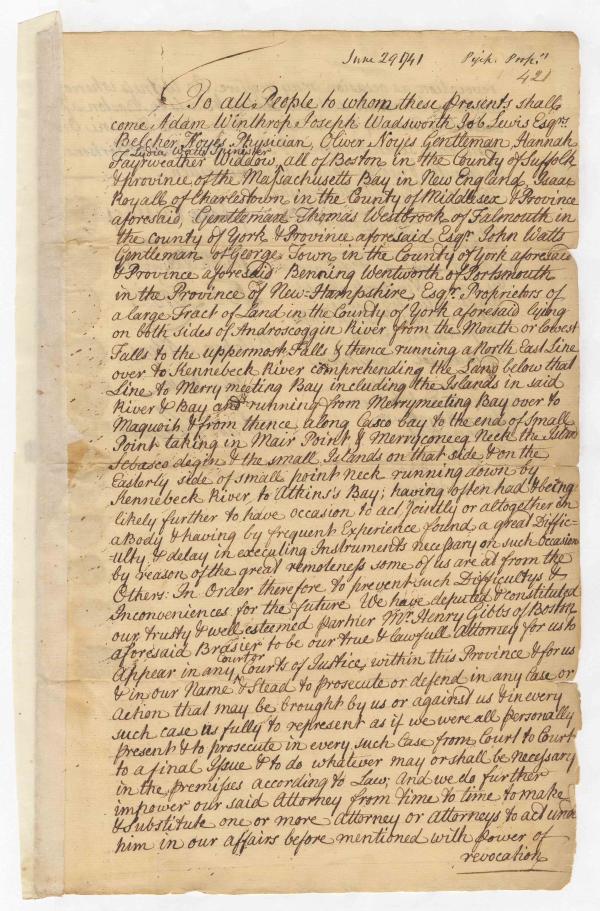 June 29 1741
Pejck. Prop.rs
421
To all People to whom these Presents shall
come Adam Winthrop Joseph Wadsworth Job Lewis Esqrs.
Belcher Noyes Physician, Oliver Noyes Gentleman Hannah
Lydia Watts Spinster
Fayrweather Widdow, all of Boston in the County of Suffolk
& province of the Massachusetts Bay in New England, Isaac
Royall of Charlestown in the County of Middlesex & Province
aforesaid, Gentleman Thomas Westbrook of Falmouth in
the county of York & Province aforesaid Esqr. John Watts
Gentleman of George Town in the County of York aforesaid
& Province aforesaid Benning Wentworth of Portsmouth
in the Province of New-Hampshire, Esqr. Proprietors of
a large Tract of Land in the County of York aforesaid lying
on both sides of Androscoggin River from the Mouth or lowest
Falls to the uppermost Falls & thence running a North East Line
over to Kennebeck River comprehending the Land below that
Line to Merrymeeting Bay including the Islands in said
River & Bay and running from Merrymeeting Bay over to
Maquoit & from thence along Casco bay to the end of Small
Point taking in Mair Point & Merryconeeg Neck the Island
Sebasco degin & the small Islands on that side & on the
Easterly side of small point neck running down by
Kennebeck River to Atkins's Bay; having often had & being
likely further to have occasion to act Jointly or altogether in
a Body & having by frequent Experience found a great Diffic-
=ulty & delay in executing Instruments necessary on such Occasion
by reason of the great remoteness some of us are at from the
Others: In Order therefore to prevent such Difficultys &
Inconveniences for the future We have deputed & constituted
our trusty & well esteemed partner Mr. Henry Gibbs of Boston
aforesaid Brasier to be our true & lawfull Attorney for us to
Court or
Appear in any Courts of Justice, within this Province & for us
& in our Name & Stead to prosecute or defend in any case or
action that may be brought by us or against us & in every
such case as fully to represent as if we were all personally
present & to prosecute in every such Case from Court to Court
to a final Issue & to do whatever may or shall be necessary
in the premisses according to Law; And we do further
impower our said Attorney from time to time to make
& substitute one or more attorney or attorneys to act under
him in our affairs before mentioned with power of
revocation